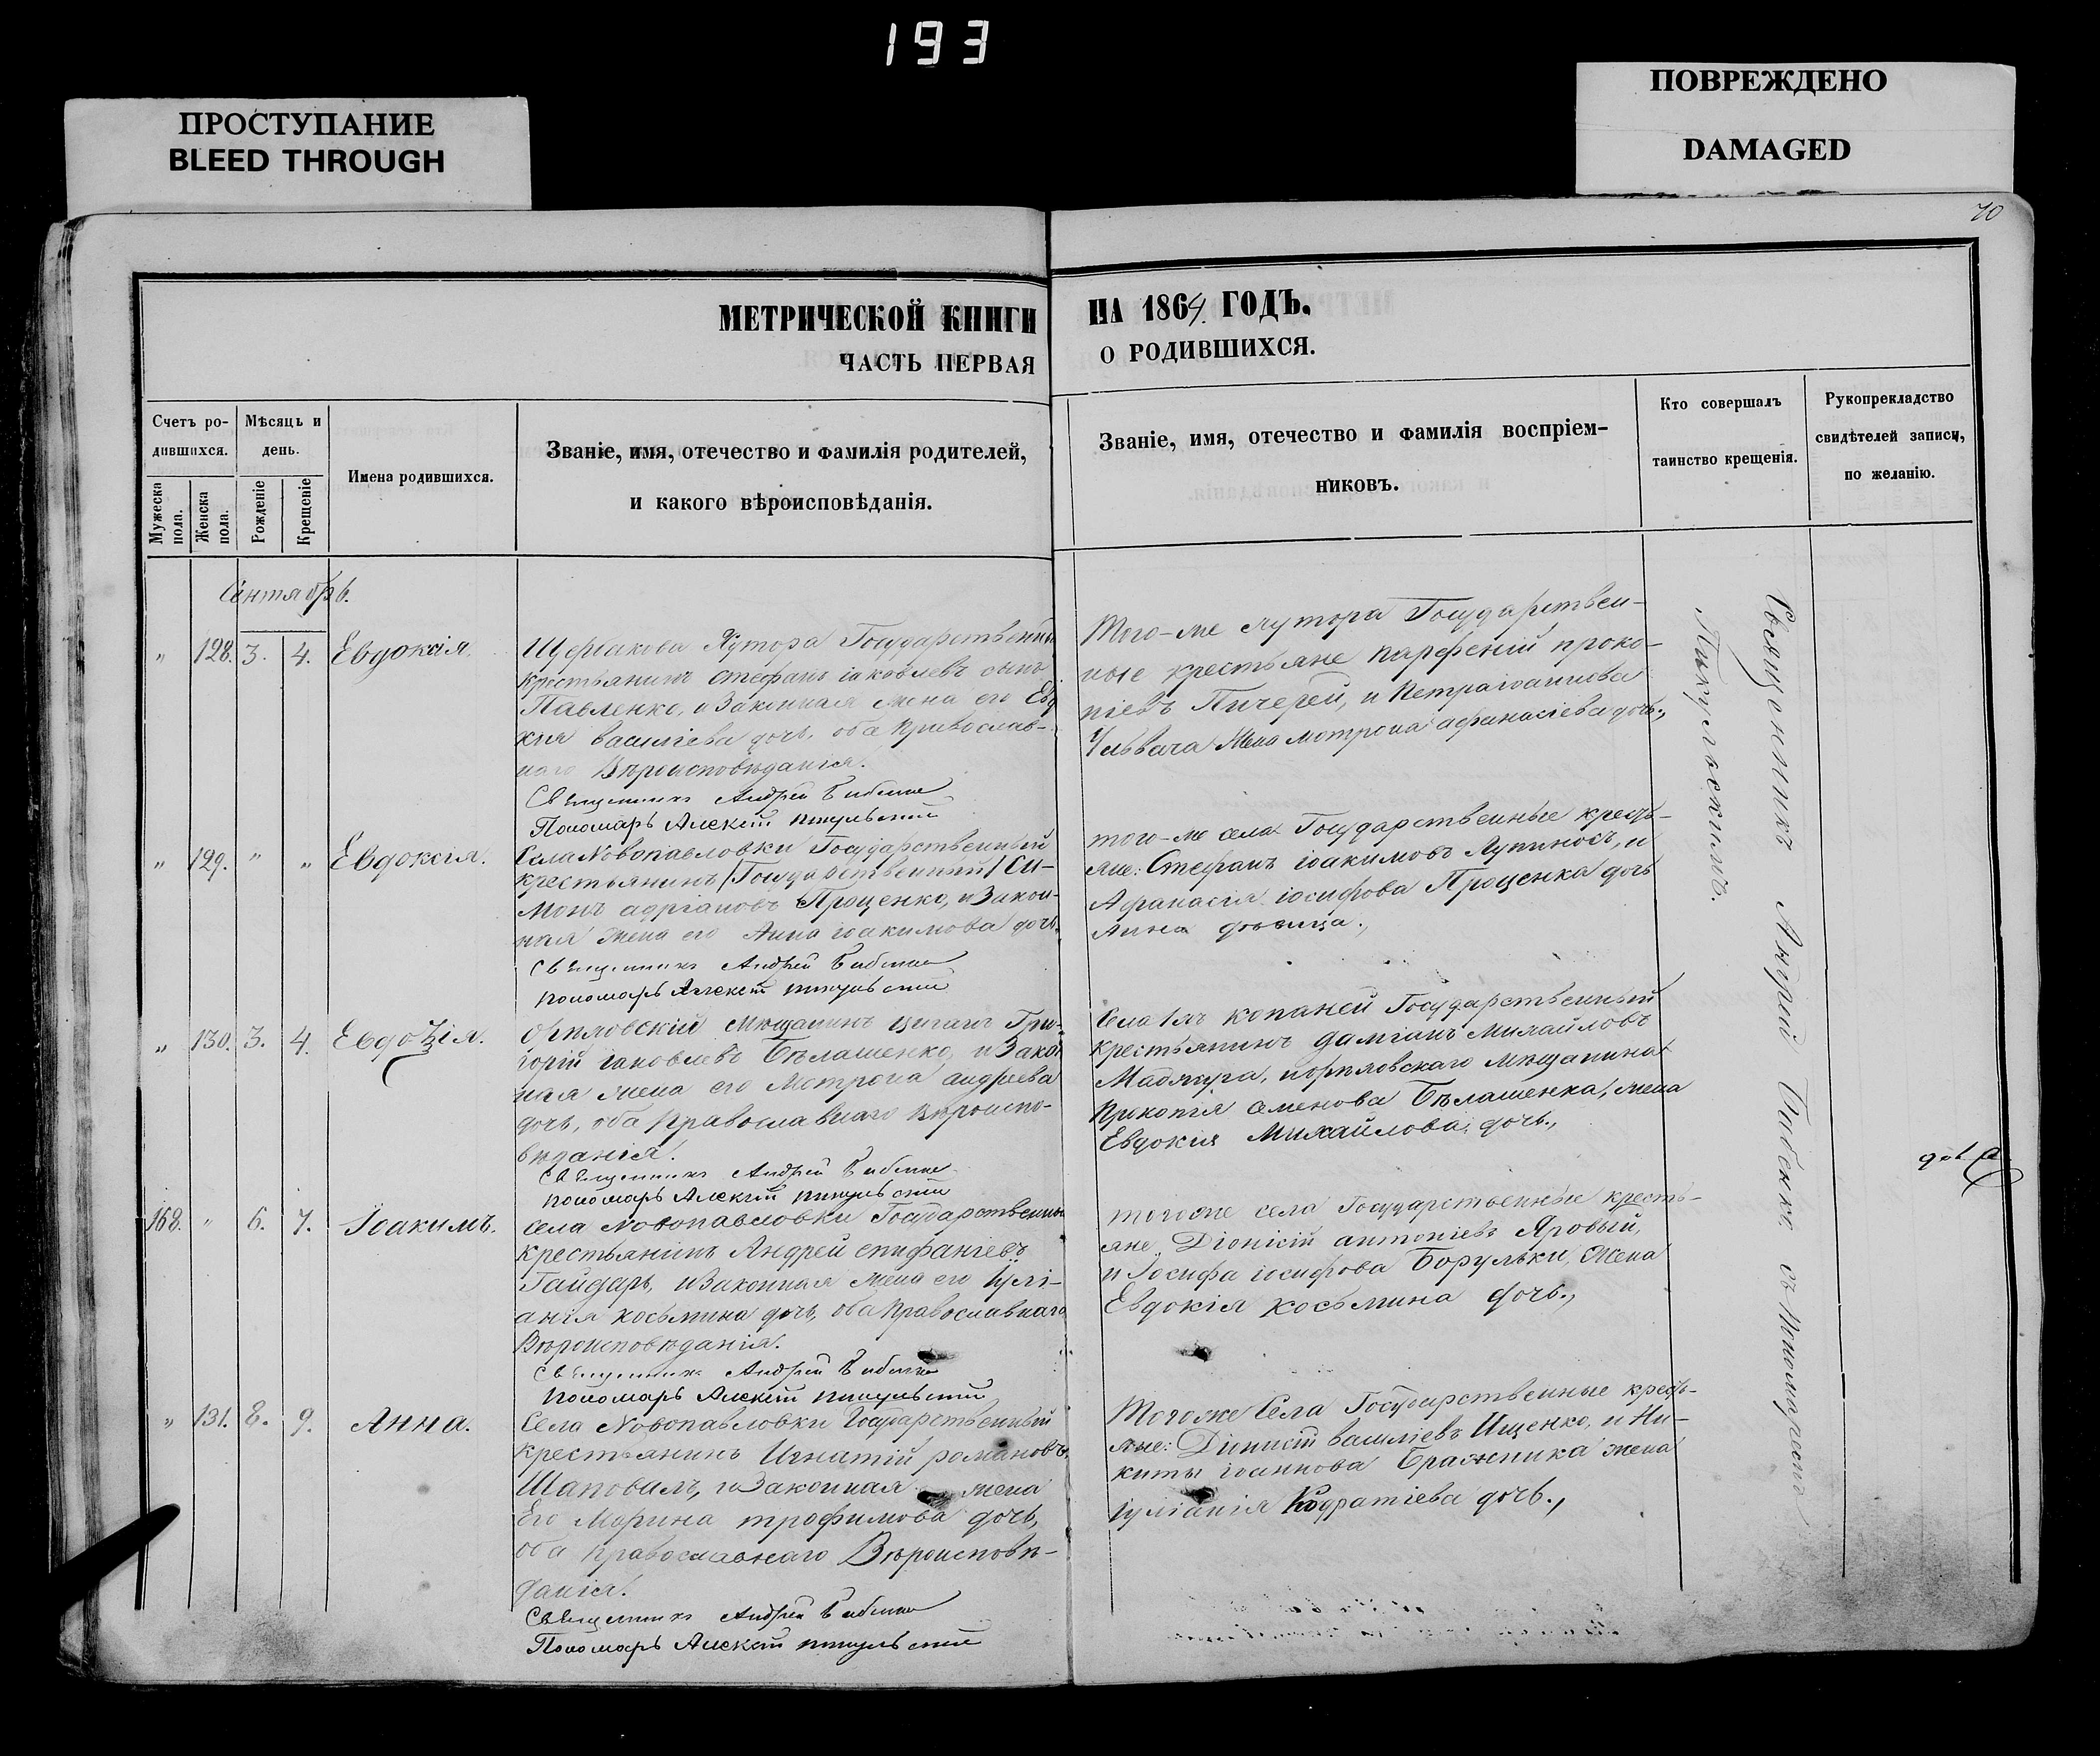 193
ПРОСТУПАНИЕ
BLEED THROUGH
ПОВРЕЖДЕНО
DAMAGED
70
МЕТРИЧЕСКОЙ КНИГИ
НА 1864 ГОДЪ.
ЧАСТЬ ПЕРВАЯ
О РОДИВШИХСЯ.
Счетъ ро-
дившихся.
Мужеска
пола.
Женска
пола.
Мѣсяцъ и
день.
Рожденіе
Крещеніе
Имена родившихся.
Званіе, имя, отечество и фамилія родителей,
и какого вѣроисповѣданія.
Званіе, имя, отечество и фамилія воспріем-
никовъ.
Кто совершалъ
таинство крещенія.
Рукоприкладство
свидѣтелей записи,
по желанію.
Сентябрь.
„ 128. 3. 4. Евдокія.
Щербакова Хутора Государственны
крестьянинъ стефанъ іаковлевъ сынъ
Павленко, и Законная жена его Евд
кия василіева дочь, оба Православ-
наго Вѣроисповѣданія.
Священникъ Андрей
Пономарь Алексій
Того-же хутора Государствен-
ные крестьяне парфеній проко-
піевъ Пичерей, и Петра іоаннова
жена мотрона афанасіева дочь.,
„ 129. „ „ Евдокія.
Села Новопавловки Государственный
крестьянинъ /Государственный/ Си-
монъ адріановъ Проценко, и Закон-
ная жена его Анна іоакимова дочь.
Священникъ Андрей
пономарь Алексій
того-же села Государственные кресть-
яне: Стефанъ іоакимовъ Лупиносъ, и
Афанасія іосифова Проценка дочь
Анна дѣвица.,
„ 130. 3. 4. Евдокія.
мѣщанинъ Гри-
горій іаковлевъ Бѣлашенко, и Закон
ная жена его Мотрона андреева
дочь, оба Православнаго вѣроиспо-
вѣданія.
Священникъ Андрей
пономарь Алексій
Села копаней Государственный
крестьянинъ даміанъ Михайловъ
мѣщанина
Прокопія семенова Бѣлашенка, жена
Евдокія Михайлова дочь.,
168. „ 6. 7. Іоакимъ.
Села Новопавловки Государственны
крестьянинъ Андрей епифаніевъ
Гайдарь, и Законная жена его Іулі-
анія косьмина дочь, оба Православнаго
Вѣроисповѣданія.
Священникъ Андрей
пономарь Алексій
тогоже села Государственные кресть-
яне, Діонисій антоніевъ Яровый,
и Іосифа іосифова Борульки, Жена
Евдокія косьмина дочь.,
„ 131. 8. 9. Анна.
Села Новопавловки Государственный
крестьянинъ Игнатій романовъ
Шаповалъ, и Законная жена
Его Марина трофимова дочь,
оба православнаго Вѣроисповѣ-
данія.
Священникъ Андрей
Пономарь Алексій
Тогоже Села Государственные кресть-
яне: Діонисій василіевъ Ищенко, и Ни-
киты іоаннова Бражника жена
іуліанія Кодратіева дочь.,
Священникъ Андрей съ Пономаремъ